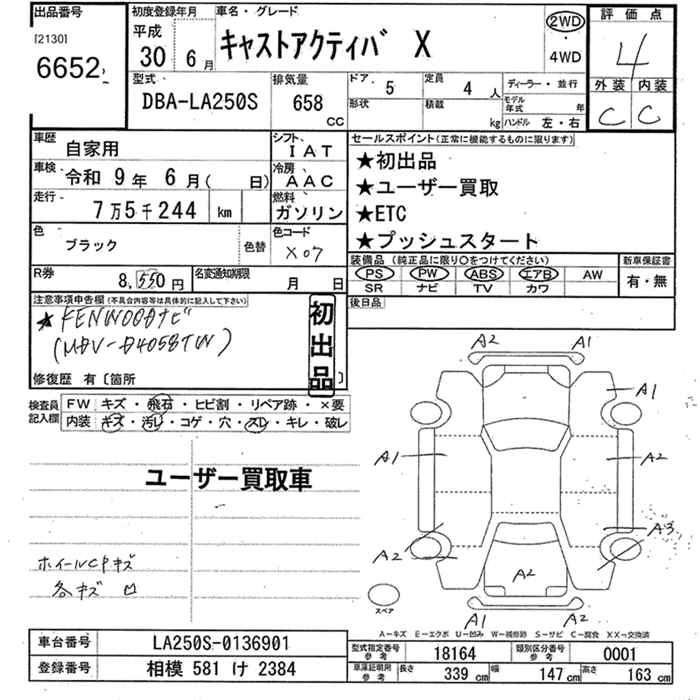 出品番号
[2130]
6652
初度登録年月
平成
30年 6月
車名・グレード
キャストアクティバ X
2WD
・
4WD
評価点
4
外装 内装
C C
型式
DBA-LA250S
排気量
658
CC
ドア 5
形状
定員 4人
積載 kg
ディーラー・並行
モデル年式 年
ハンドル 左・右
車歴 自家用
車検 令和 9年 6月( 日)
走行 7万5千244 km
色 ブラック
色替
シフト IAT
冷房 AAC
燃料 ガソリン
色コード X07
セールスポイント(正常に機能するものに限ります)
★初出品
★ユーザー買取
★ETC
★プッシュスタート
R券 8,550円
名変通知期限 月 日
装備品(純正品に限り○をつけてください)
PS PW ABS エアB AW
SR ナビ TV カワ
新車保証書
有・無
後日品
注意事項申告欄(不具合内容等は具体的に記入して下さい)
★KENWOODナビ
(MDV-D405BTW)
初出品
修復歴 有〔箇所 〕
検査員記入欄
FW キズ・飛石・ヒビ割・リペア跡・×要
内装 キズ・汚レ・コゲ・穴・スレ・キレ・破レ
ユーザー買取車
ホイールCPキズ
各キズ凹
A2 A1
A1
A1 A2
A2 A3
A2
A1 A2
スペア
A―キズ E―エクボ U―凹み W―補修跡 S―サビ C―腐食 XX―交換済
車台番号 LA250S-0136901
登録番号 相模 581 け 2384
型式指定番号 参考 18164
類別区分番号 参考 0001
車庫証明用 参考 長さ 339 cm 幅 147 cm 高さ 163 cm